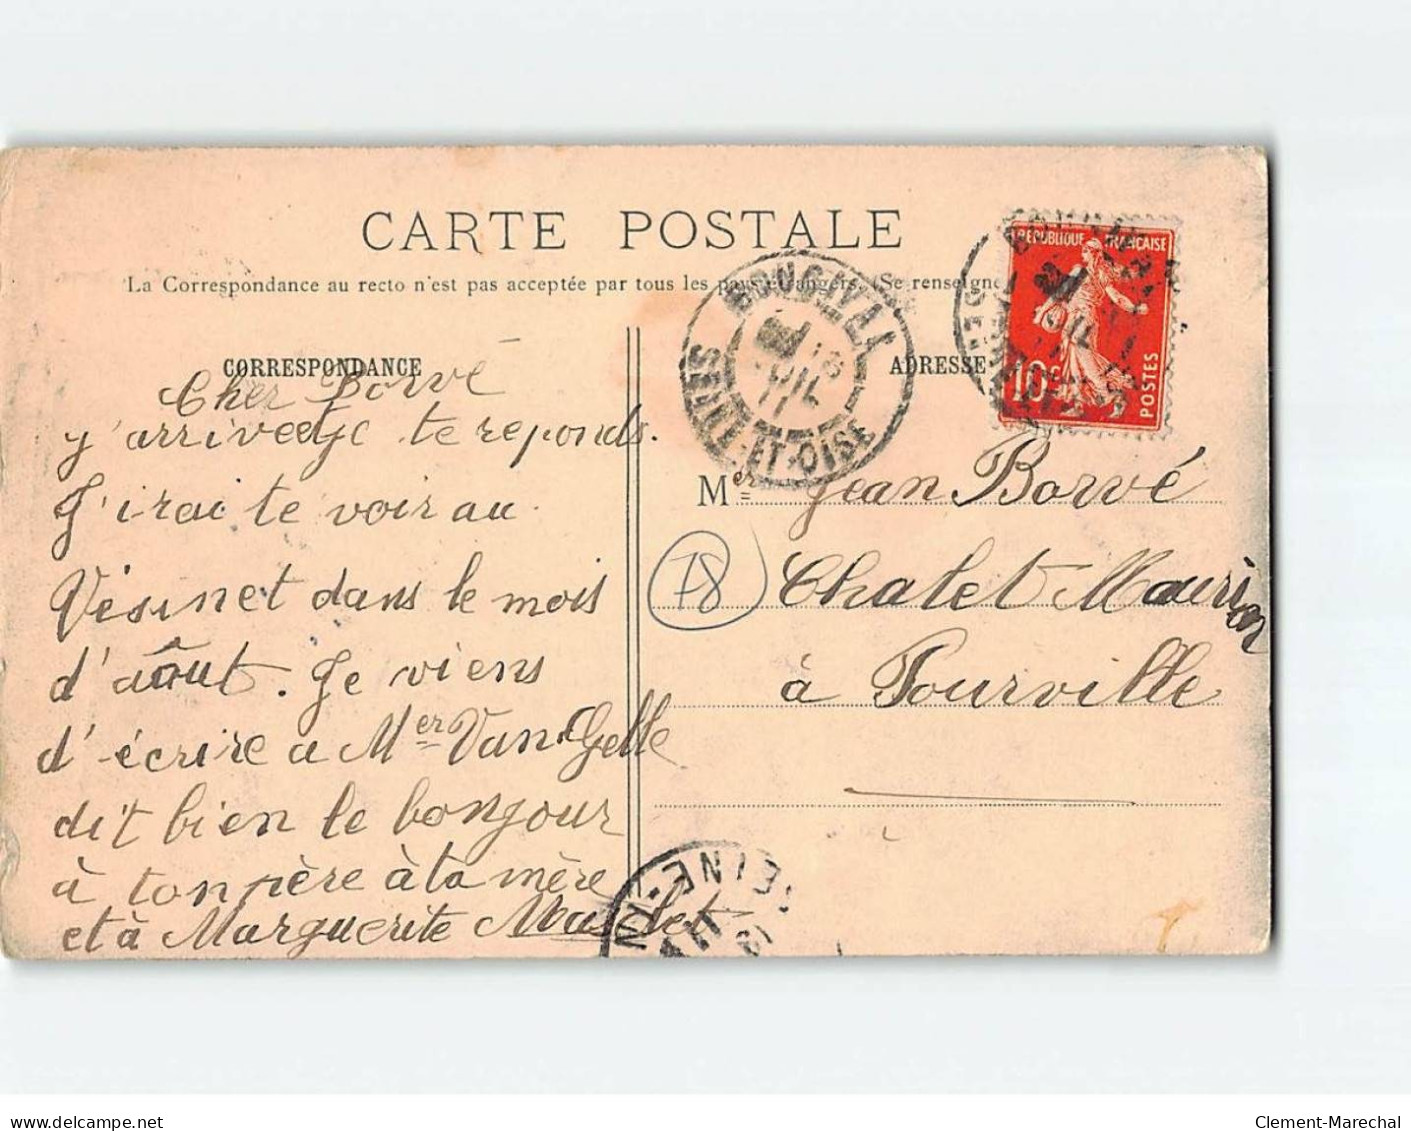 CARTE POSTALE
La Correspondance au recto n'est pas acceptée par tous les pays étrangers. (Se renseigne
CORRESPONDANCE
Cher Borvé
j'arrive et je te reponds.
J'irai te voir au
Vésinet dans le mois
d'août. Je viens
d'écrire a Mer Van Gelle
dit bien le bonjour
à ton père à ta mère
et à Marguerite
BOUGIVAL
18
JUIL
11
SEINE-ET-OISE
ADRESSE
REPUBLIQUE FRANÇAISE
10
POSTES
Mer Jean Borvé
78
Chalet Maurion
à Pourville
SEINE-IN
delcampe.net
Clement-Marechal